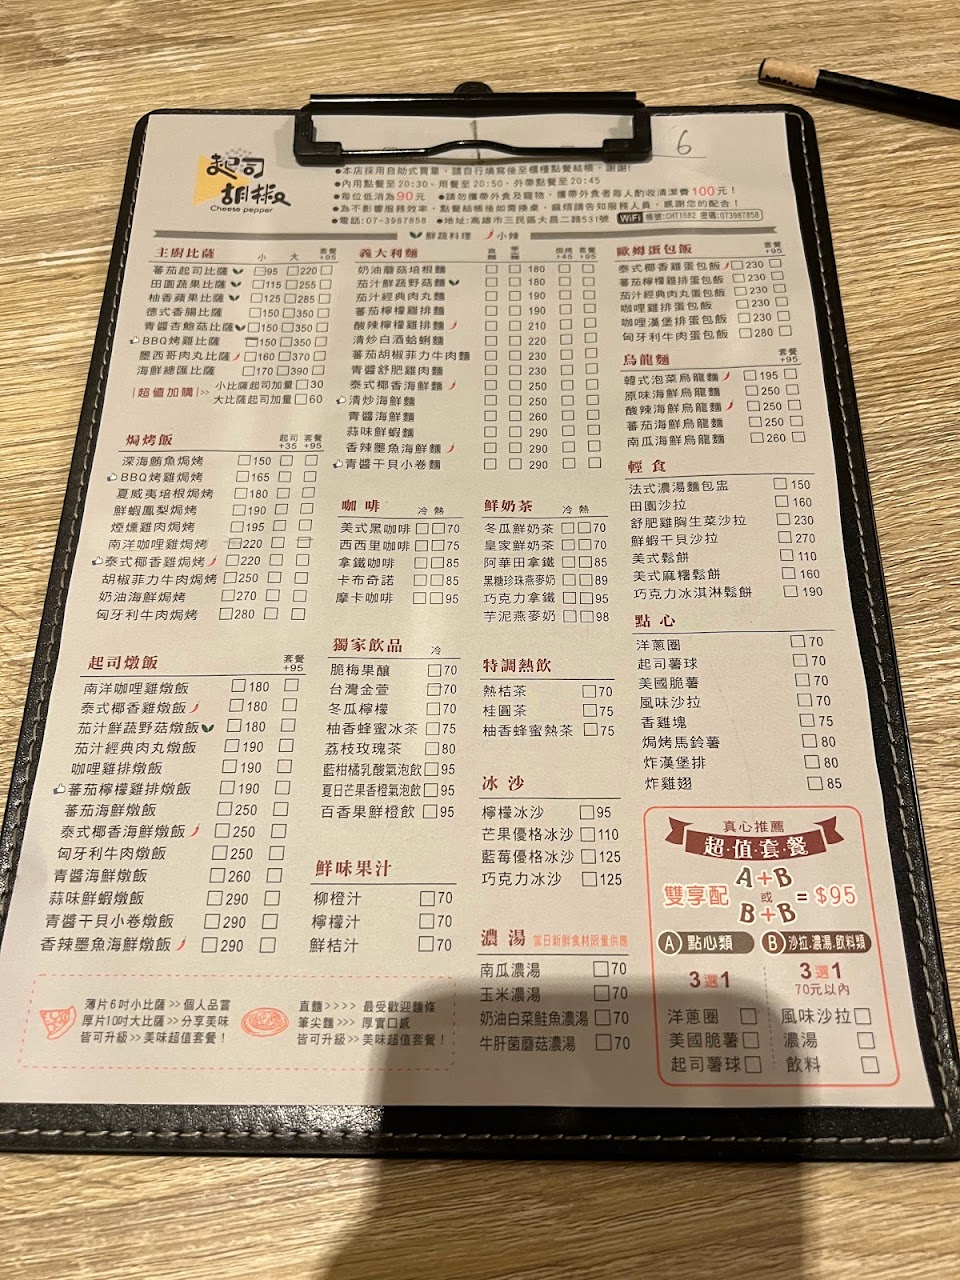 起司
胡椒
Cheese pepper
6
●本店採用自助式買單，請自行填寫後至櫃檯點餐結帳，謝謝!
●內用點餐至20:30、用餐至20:50，外帶點餐至20:45
●每位低消為90元 ●請勿攜帶外食及寵物，攜帶外食者每人酌收清潔費100元！
●為不影響服務效率，點餐結帳後如需換桌，麻煩請告知服務人員，感謝您的配合！
●電話:07-3987858 ●地址:高雄市三民區大昌二路531號 WiFi 帳號:CHT1682 密碼:073987858
鮮蔬料理 小辣
主廚比薩 小 大 套餐+95
蕃茄起司比薩 95 220
田園蔬果比薩 115 255
柚香蘋果比薩 125 285
德式香腸比薩 150 350
青醬杏鮑菇比薩 150 350
BBQ烤雞比薩 150 350
墨西哥肉丸比薩 160 370
海鮮總匯比薩 170 390
|超值加購|>> 小比薩起司加量 30
大比薩起司加量 60
焗烤飯 起司+35 套餐+95
深海鮪魚焗烤 150
BBQ烤雞焗烤 165
夏威夷培根焗烤 180
鮮蝦鳳梨焗烤 190
煙燻雞肉焗烤 195
南洋咖哩雞焗烤 220
泰式椰香雞焗烤 220
胡椒菲力牛肉焗烤 250
奶油海鮮焗烤 270
匈牙利牛肉焗烤 280
起司燉飯 套餐+95
南洋咖哩雞燉飯 180
泰式椰香雞燉飯 180
茄汁鮮蔬野菇燉飯 180
茄汁經典肉丸燉飯 190
咖哩雞排燉飯 190
蕃茄檸檬雞排燉飯 190
蕃茄海鮮燉飯 250
泰式椰香海鮮燉飯 250
匈牙利牛肉燉飯 250
青醬海鮮燉飯 260
蒜味鮮蝦燉飯 290
青醬干貝小卷燉飯 290
香辣墨魚海鮮燉飯 290
義大利麵 直麵 筆尖麵 焗烤+45 套餐+95
奶油蘑菇培根麵 180
茄汁鮮蔬野菇麵 180
茄汁經典肉丸麵 190
蕃茄檸檬雞排麵 190
酸辣檸檬雞排麵 210
清炒白酒蛤蜊麵 220
蕃茄胡椒菲力牛肉麵 230
青醬舒肥雞肉麵 230
泰式椰香海鮮麵 250
清炒海鮮麵 250
青醬海鮮麵 260
蒜味鮮蝦麵 290
香辣墨魚海鮮麵 290
青醬干貝小卷麵 290
咖啡 冷 熱
美式黑咖啡 70
西西里咖啡 75
拿鐵咖啡 85
卡布奇諾 85
摩卡咖啡 95
鮮奶茶 冷 熱
冬瓜鮮奶茶 70
皇家鮮奶茶 70
阿華田拿鐵 85
黑糖珍珠燕麥奶 89
巧克力拿鐵 95
芋泥燕麥奶 98
獨家飲品 冷
脆梅果釀 70
台灣金萱 70
冬瓜檸檬 70
柚香蜂蜜冰茶 75
荔枝玫瑰茶 80
藍柑橘乳酸氣泡飲 95
夏日芒果香橙氣泡飲 95
百香果鮮橙飲 95
特調熱飲
熱桔茶 70
桂圓茶 75
柚香蜂蜜熱茶 75
冰沙
檸檬冰沙 95
芒果優格冰沙 110
藍莓優格冰沙 125
巧克力冰沙 125
鮮味果汁
柳橙汁 70
檸檬汁 70
鮮桔汁 70
濃湯 當日新鮮食材限量供應
南瓜濃湯 70
玉米濃湯 70
奶油白菜鮭魚濃湯 70
牛肝菌蘑菇濃湯 70
歐姆蛋包飯 套餐+95
泰式椰香雞蛋包飯 230
蕃茄檸檬雞排蛋包飯 230
茄汁經典肉丸蛋包飯 230
咖哩雞排蛋包飯 230
咖哩漢堡排蛋包飯 230
匈牙利牛肉蛋包飯 280
烏龍麵 套餐+95
韓式泡菜烏龍麵 195
原味海鮮烏龍麵 250
酸辣海鮮烏龍麵 250
蕃茄海鮮烏龍麵 250
南瓜海鮮烏龍麵 260
輕食
法式濃湯麵包盅 150
田園沙拉 160
舒肥雞胸生菜沙拉 230
鮮蝦干貝沙拉 270
美式鬆餅 110
美式麻糬鬆餅 160
巧克力冰淇淋鬆餅 190
點心
洋蔥圈 70
起司薯球 70
美國脆薯 70
風味沙拉 70
香雞塊 75
焗烤馬鈴薯 80
炸漢堡排 80
炸雞翅 85
真心推薦
超·值·套·餐
雙享配 A+B 或 B+B = $95
A 點心類 B 沙拉.濃湯.飲料類
3選1 3選1
70元以內
洋蔥圈 風味沙拉
美國脆薯 濃湯
起司薯球 飲料
薄片6吋小比薩>>個人品嘗
厚片10吋大比薩>>分享美味
皆可升級>>美味超值套餐！
直麵>>>> 最受歡迎麵條
筆尖麵>>> 厚實口感
皆可升級>>美味超值套餐！